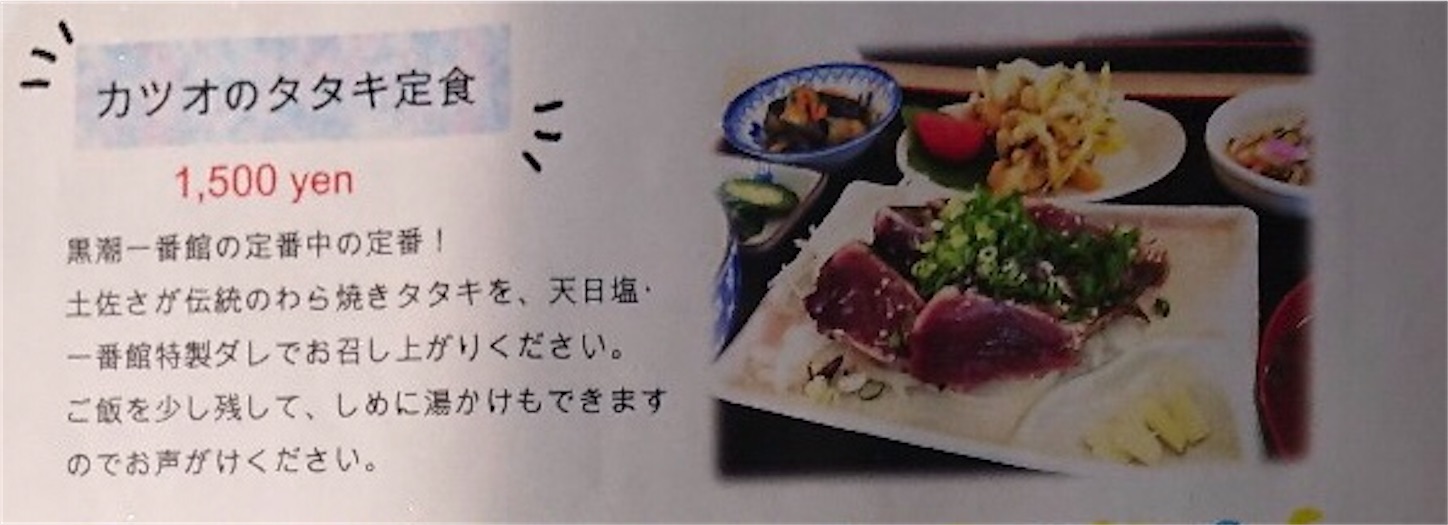 カツオのタタキ定食
1,500 yen
黒潮一番館の定番中の定番!
土佐さが伝統のわら焼きタタキを、天日塩・
一番館特製ダレでお召し上がりください。
ご飯を少し残して、しめに湯かけもできます
のでお声がけください。